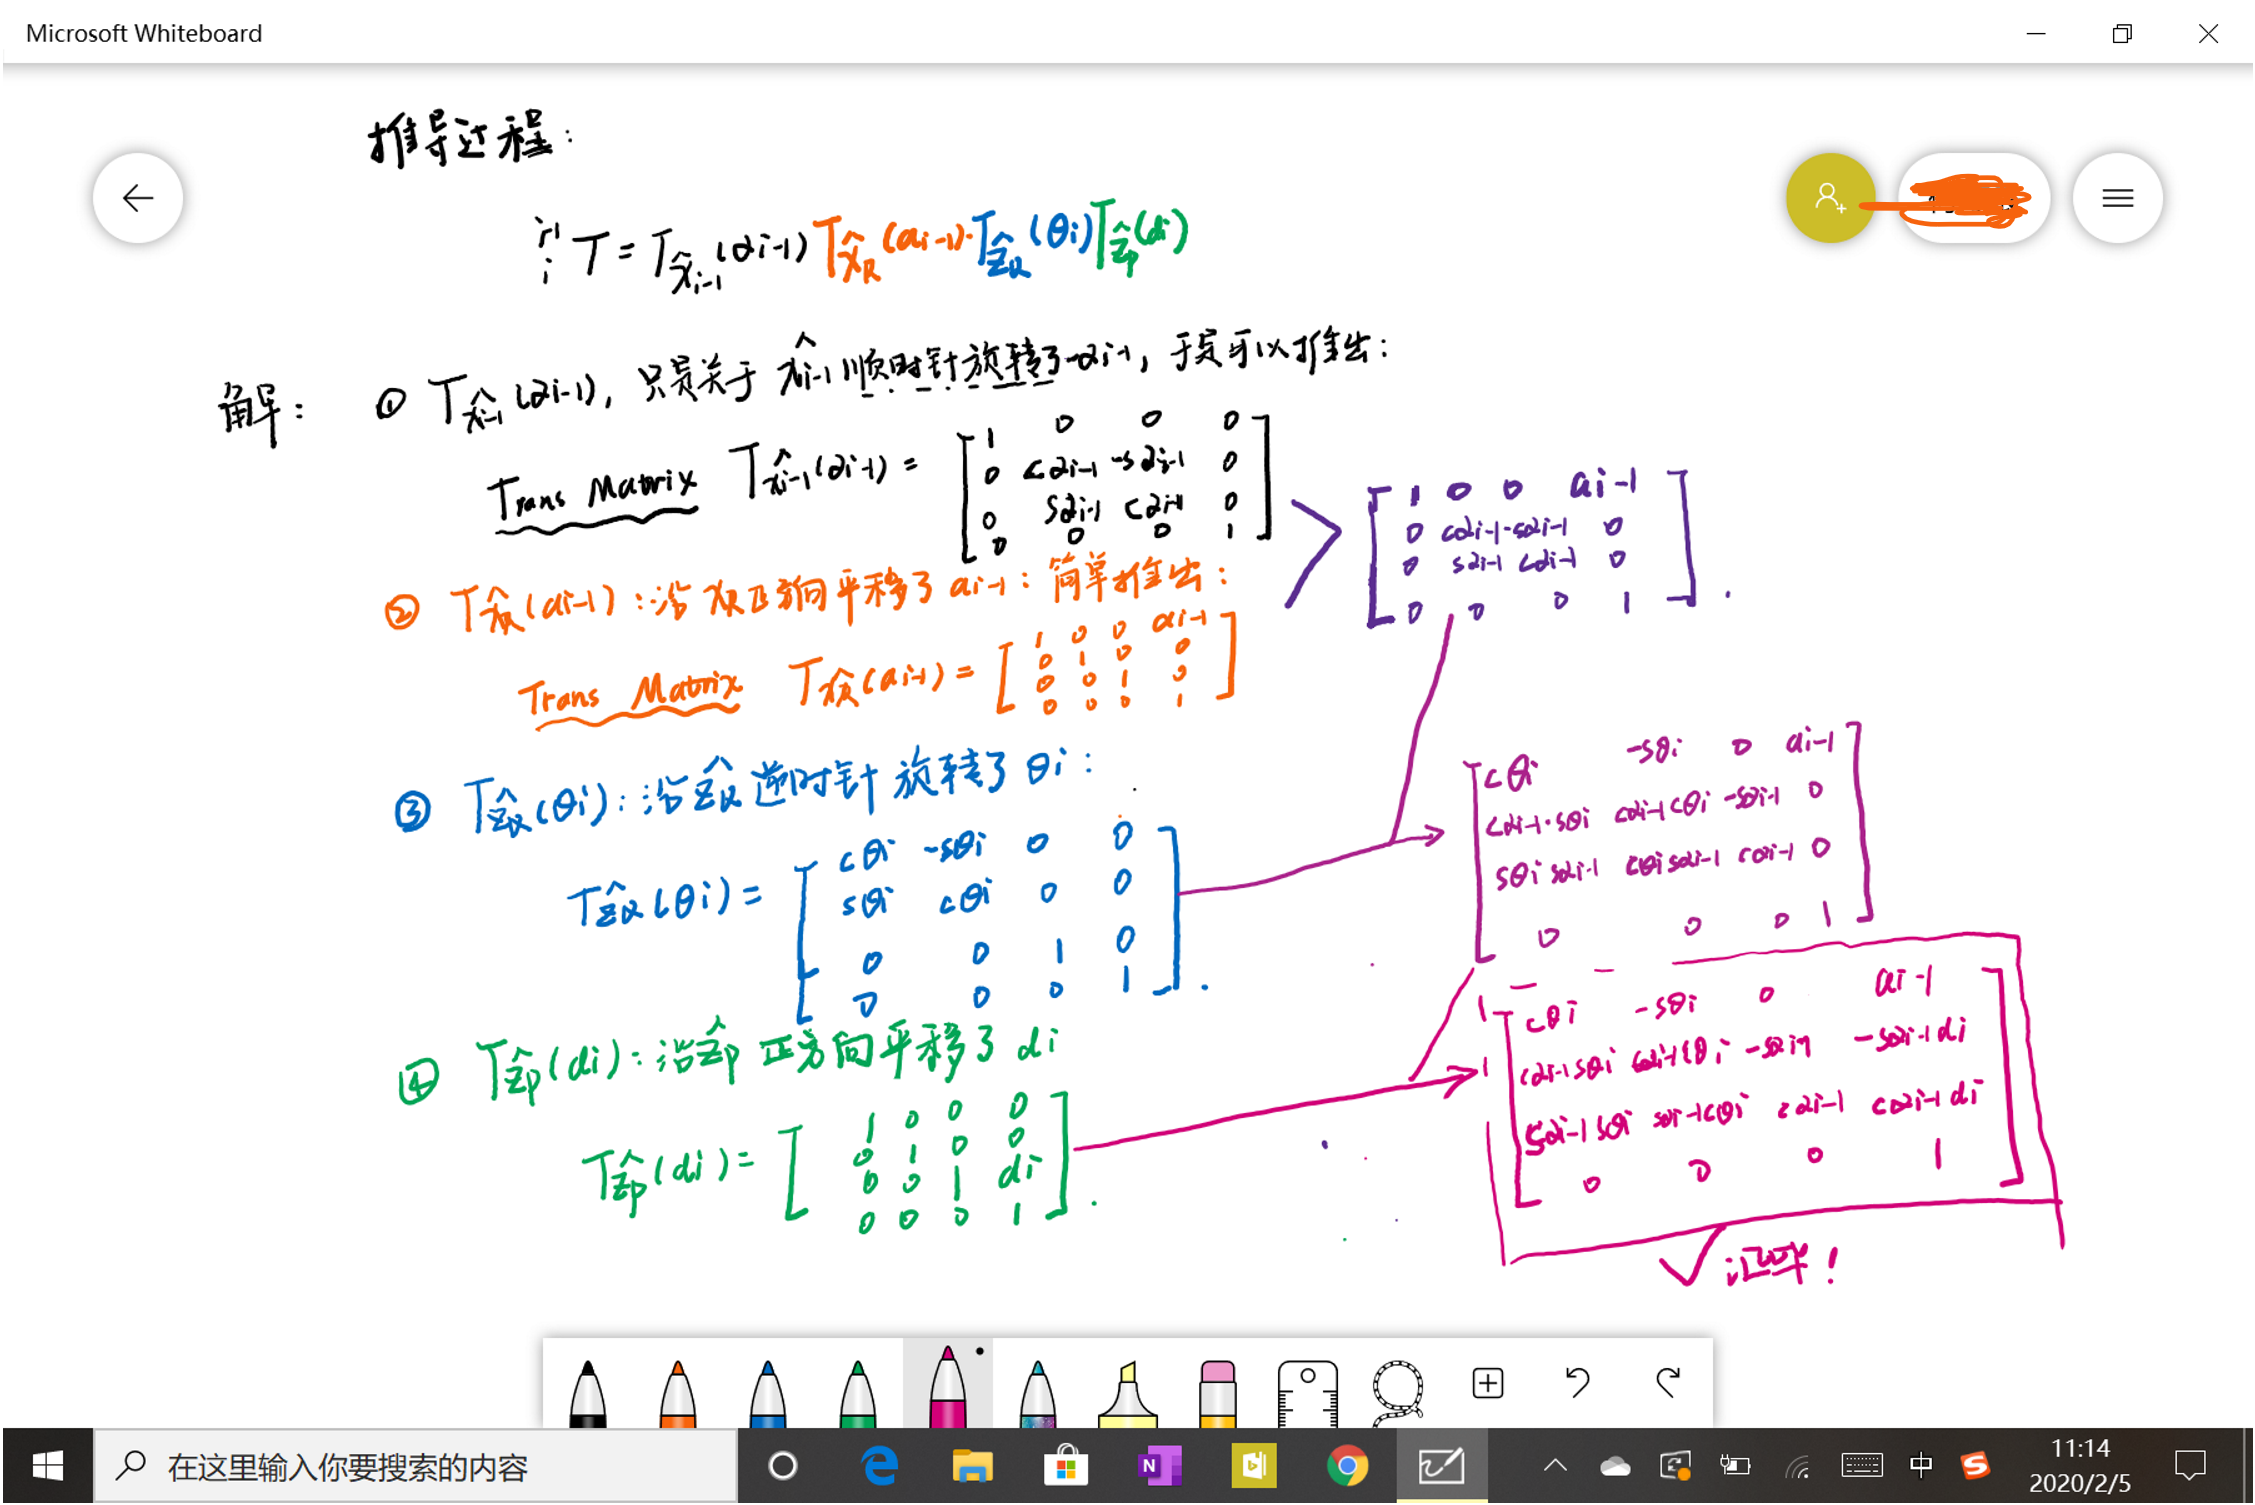 Microsoft Whiteboard
推导过程：
i-1 i T = T x̂i-1 (αi-1) T x̂R (ai-1) · T ẑR (θi) T ẑP (di)
解： ① T x̂i-1 (αi-1)，只是关于 x̂i-1 顺时针旋转了-αi-1，于是可以推出：
Trans Matrix T x̂i-1 (αi-1) =
1 0 0 0
0 cαi-1 -sαi-1 0
0 sαi-1 cαi-1 0
0 0 0 1
1 0 0 ai-1
0 cαi-1 -sαi-1 0
0 sαi-1 cαi-1 0
0 0 0 1
② T x̂R (ai-1)：沿 x̂R 正方向平移了 ai-1：简单推出：
Trans Matrix T x̂R (ai-1) =
1 0 0 ai-1
0 1 0 0
0 0 1 0
0 0 0 1
③ T ẑR (θi)：沿 ẑR 逆时针 旋转了 θi：
T ẑR (θi) =
cθi -sθi 0 0
sθi cθi 0 0
0 0 1 0
0 0 0 1
cθi -sθi 0 ai-1
cαi-1·sθi cαi-1cθi -sαi-1 0
sθi sαi-1 cθi sαi-1 cαi-1 0
0 0 0 1
④ T ẑP (di)：沿 ẑP 正方向平移了 di
T ẑP (di) =
1 0 0 0
0 1 0 0
0 0 1 di
0 0 0 1
cθi -sθi 0 ai-1
cαi-1sθi cαi-1cθi -sαi-1 -sαi-1di
sαi-1sθi sαi-1cθi cαi-1 cαi-1di
0 0 0 1
✓ 证毕！
在这里输入你要搜索的内容
中
11:14
2020/2/5